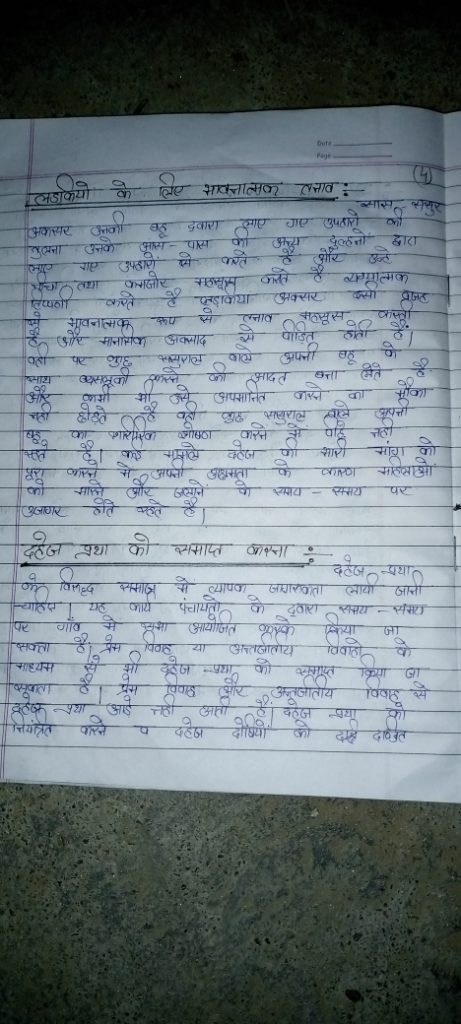 Date
Page
(4)
लडकियो के लिए भावनात्मक तनाव :-
सास ससुर
अकसर उनकी बहु दवारा लाए गए उपहारो की
तुलना उनके आस-पास की अन्य दुल्हनो द्वारा
लाए गए उपहारो से करते है और उन्हे
नीचा तथा कमजोर महसूस करते है व्यंग्यात्मक
टिप्पणी करते है लडकिया अक्सर इसी वजह
से भावनात्मक रूप से तनाव महसूस करती
है और मानसिक अवसाद से पीडित होती है।
वही पर कुछ ससुराल वाले अपनी बहु के
साथ बदसलूकी करने की आदत बना लेते है
और कभी भी उसे अपमानित करने का मौका
नही छोडते है वही कुछ ससुराल वाले अपनी
बहु का शारीरिक शोषण करने से पीछे नही
रहते है। कई मामले दहेज की भारी मांग को
पूरा करने मे अपनी अक्षमता के कारण महिलाओं
को मारने और जलाने के समय-समय पर
उजागर होते रहते है।
दहेज प्रथा को समाप्त करना :-
दहेज प्रथा
के विरुद्ध समाज मे व्यापक जागरूकता लायी जानी
चाहिए। यह कार्य पंचायतो के दवारा समय-समय
पर गाँव मे सभा आयोजित करके किया जा
सकता है। प्रेम विवाह या अन्तजातीय विवाहो के
माध्यम से भी दहेज-प्रथा को समाप्त किया जा
सकता है। प्रेम विवाह और अन्तजातीय विवाह से
दहेज-प्रथा आडे नही आती है। दहेज प्रथा को
नियंत्रित करने व दहेज दोषियो को दण्डित